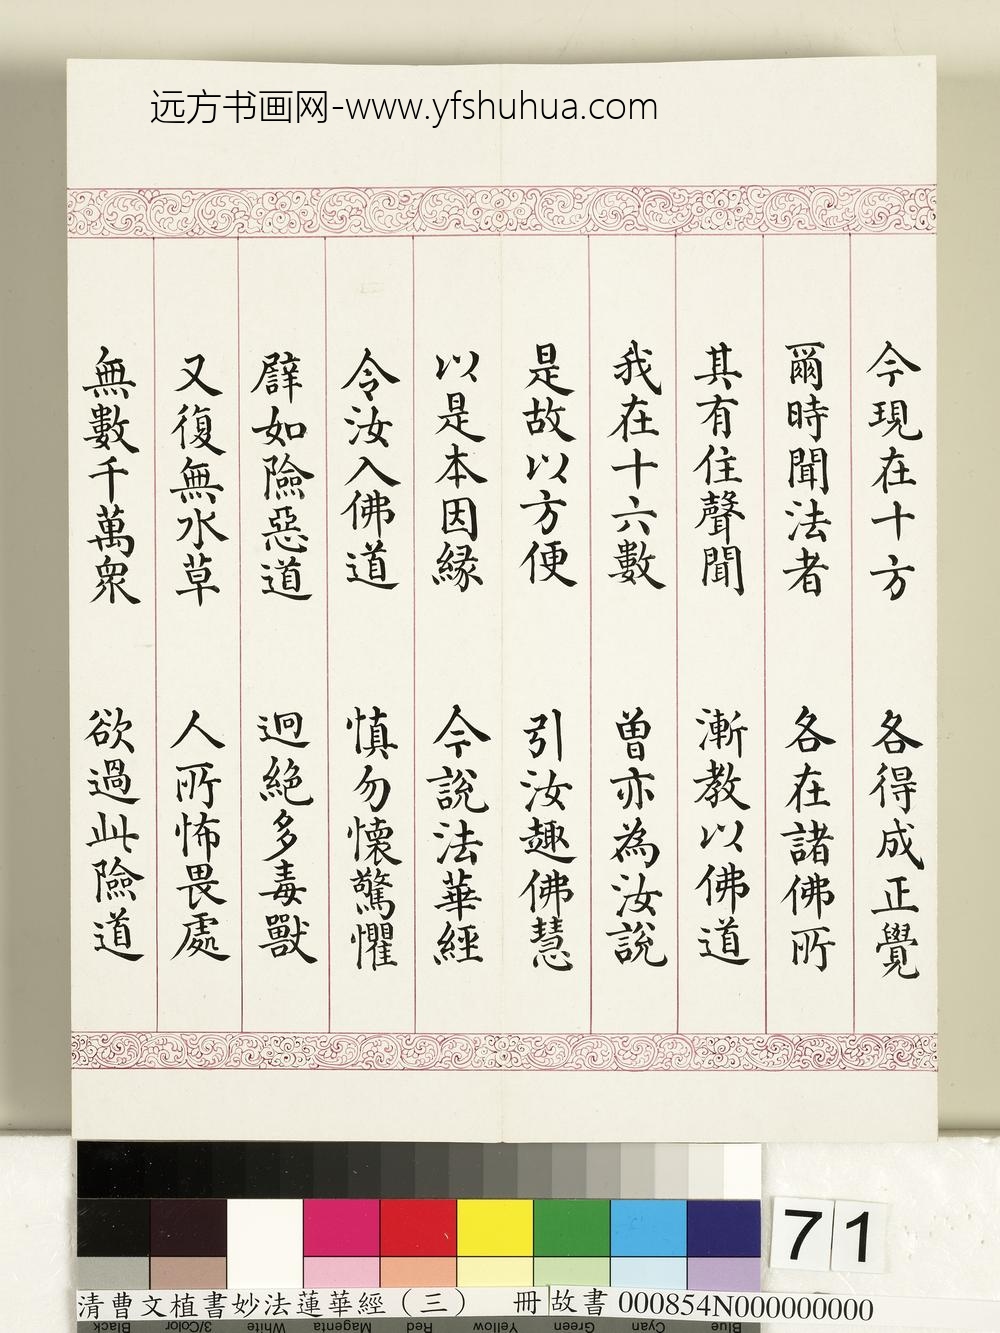 远方书画网-www.yfshuhua.com
今現在十方 各得成正覺
爾時聞法者 各在諸佛所
其有住聲聞 漸教以佛道
我在十六數 曾亦為汝說
是故以方便 引汝趣佛慧
以是本因緣 今說法華經
令汝入佛道 慎勿懷驚懼
譬如險惡道 迥絕多毒獸
又復無水草 人所怖畏處
無數千萬眾 欲過此險道
71
清曹文植書妙法蓮華經（三） 冊 故書 000854N000000000
Black 3/Color White Magenta Red Yellow Green Cyan Blue